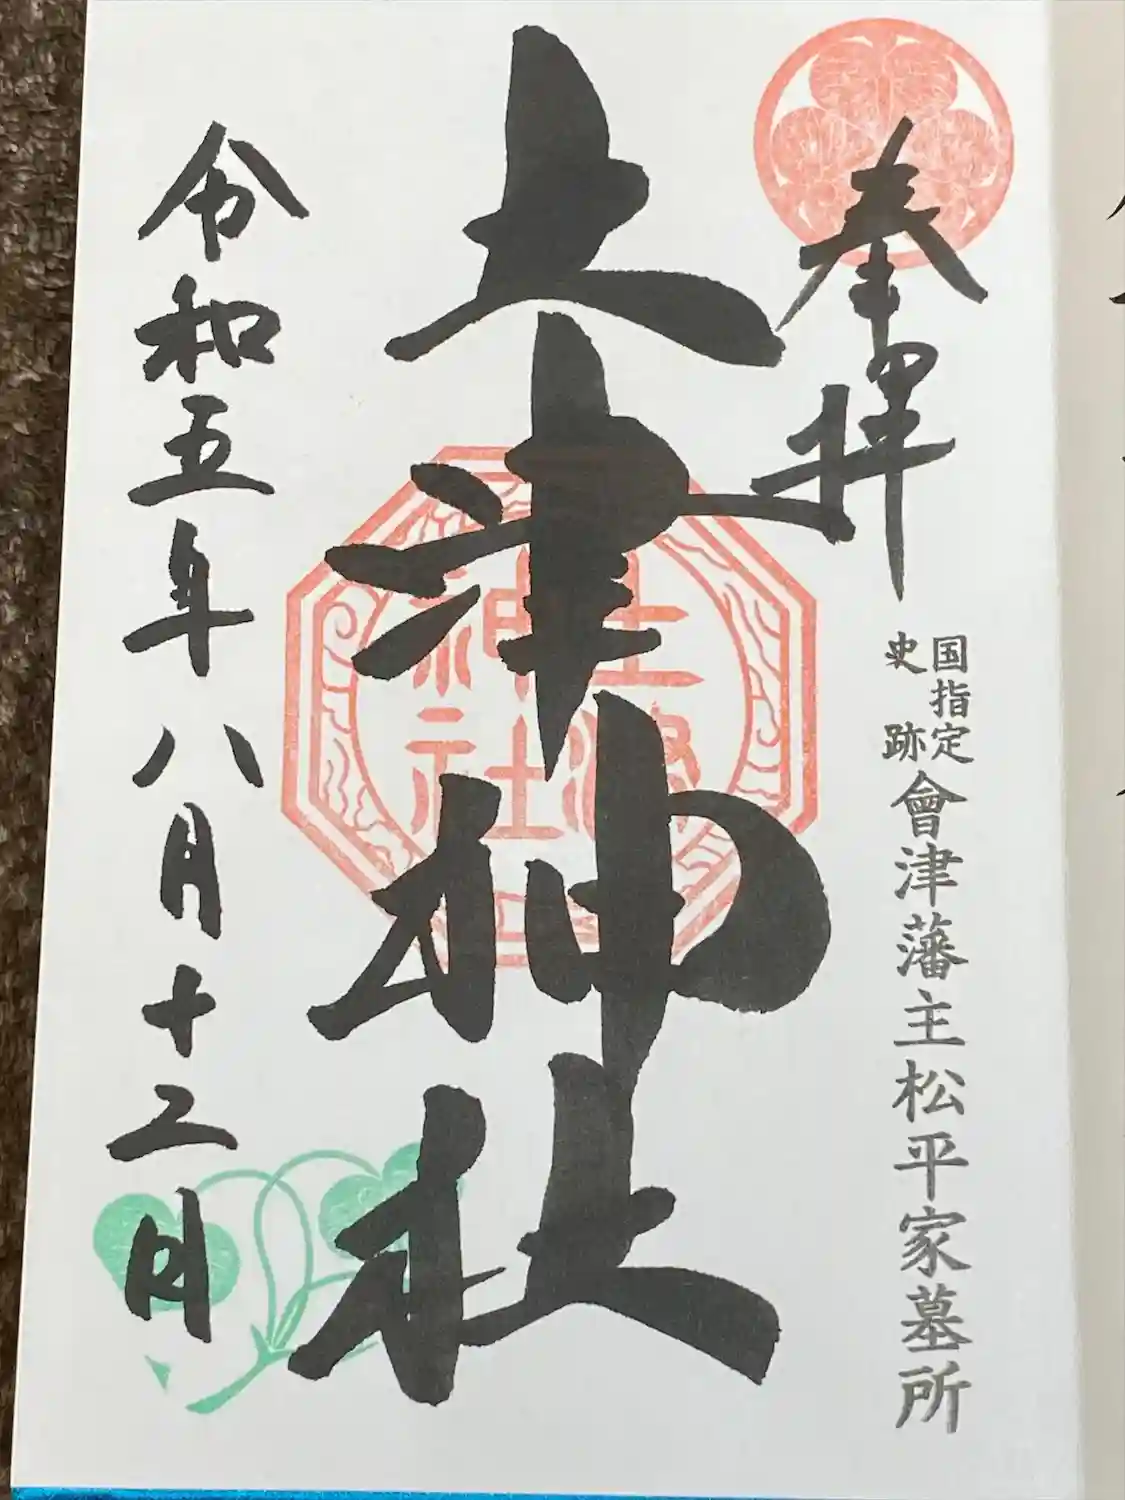 奉拝
国指定
史跡
會津藩主松平家墓所
土津神社
土津
神社
令和五年八月十二日